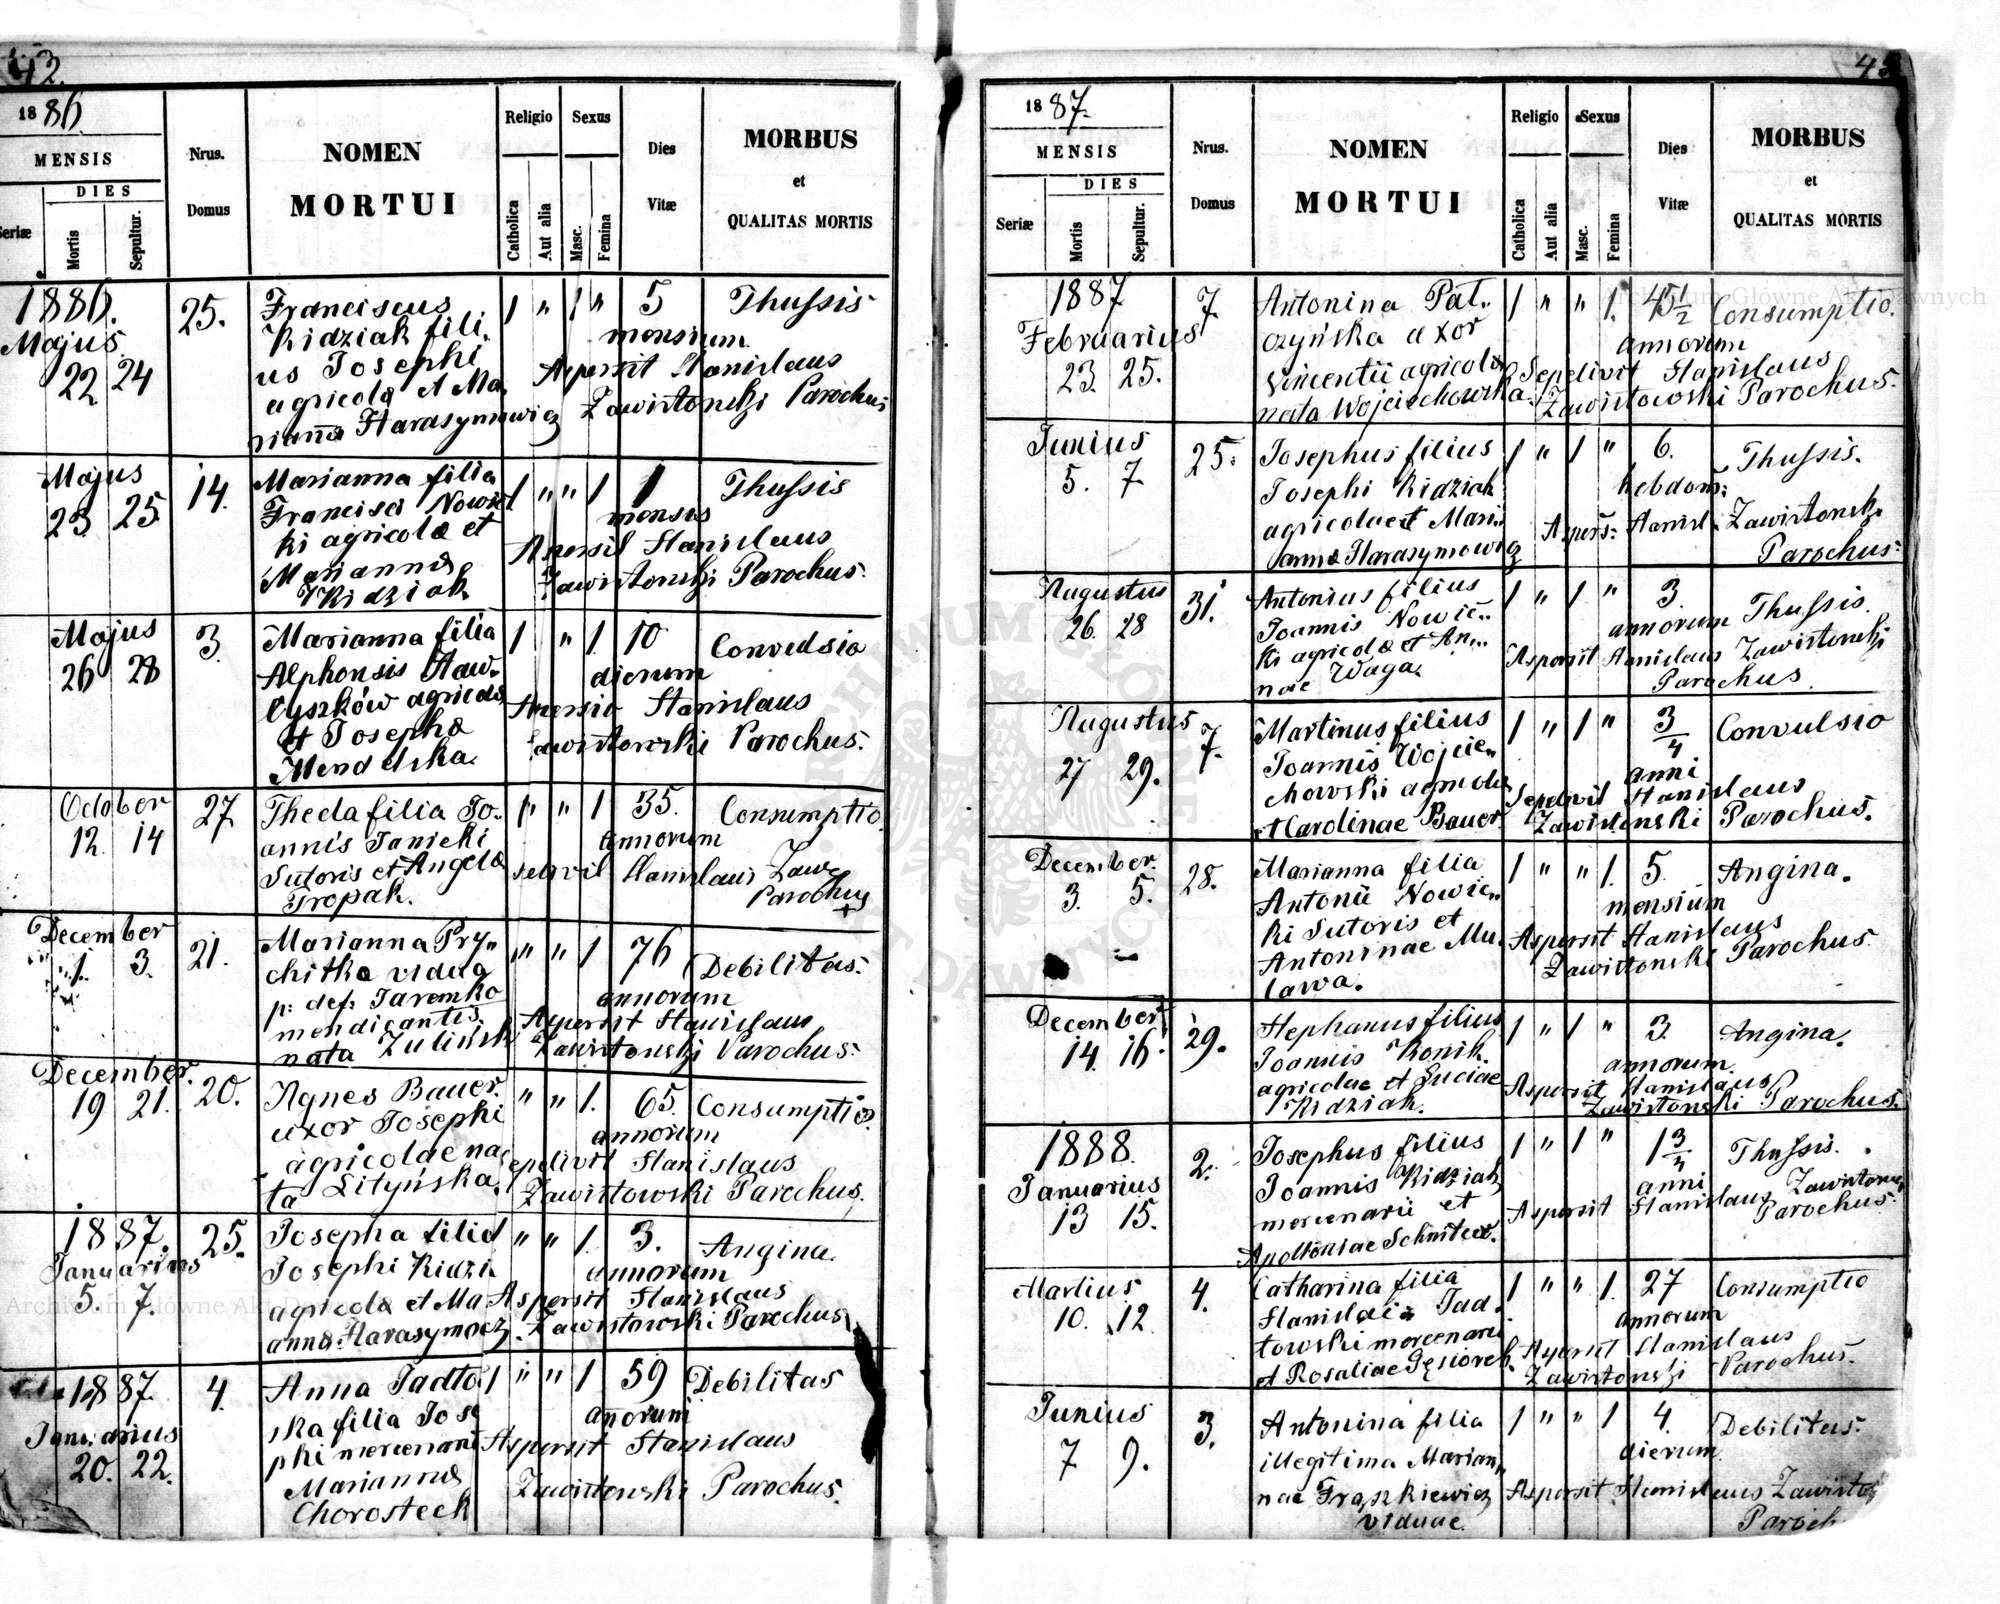 42.
1886.
MENSIS
DIES
Seriæ
Mortis
Sepultur.
Nrus.
Domus
NOMEN
MORTUI
Religio
Catholica
Aut alia
Sexus
Masc.
Femina
Dies
Vitæ
MORBUS
et
QUALITAS MORTIS
1886.
Majus
22 24
25.
Franciscus
Kidziak fili.
us Josephi
agricolæ et Ma
rianna Harasymowicz
1 " 1 "
5
mensium
Thussis
Aspersit Stanislaus
Zawistonski Parochus
Majus
23 25
14.
Marianna filia
Francisci Nowic
ki agricolæ et
Marianna
Kidziak
1 " " 1
1
mensis
Thussis
Aspersit Stanislaus
Zawistonski Parochus.
Majus
26 28
3.
Marianna filia
Alphonsis Haw-
ryszków agricolæ
et Josepha
Mendelska.
1 " 1
10
dierum
Convulsio
Stanislaus
Zawistowski Parochus.
October
12 14
27
Thecla filia Jo..
annis Janicki
Sutoris et Angela
Tropak.
1 " " 1
35.
annorum
Consumptio
Stanislaus Zaw
Parochus
December
1. 3.
21.
Marianna Pry„
chitka vidua
p: def: Jaremko
mendicantis
nata Zulinsk
" " 1
76
annorum
Debilitas.
Aspersit Stanislaus
Zawistonski Parochus.
December.
19 21.
20.
Agnes Bauer.
uxor Josephi
agricolae na
ta Lityńska.
" " 1.
65.
annorum
Consumptio.
Sepelivit Stanislaus
Zawistowski Parochus.
1887.
Januarius
5. 7.
25.
Josepha filia
Josephi Kidzi
agricolæ et Ma
anna Harasymocz.
" " 1.
3.
annorum
Angina.
Aspersit Stanislaus
Zawistowski Parochus
1887.
Januarius
20. 22.
4.
Anna Jadto
ska filia Jose
phi mercenarii
Marianna
Chorosteck
1 " " 1
59
annorum
Debilitas
Aspersit Stanislaus
Zawistonski Parochus.
43
1887.
MENSIS
DIES
Seriæ
Mortis
Sepultur.
Nrus.
Domus
NOMEN
MORTUI
Religio
Catholica
Aut alia
Sexus
Masc.
Femina
Dies
Vitæ
MORBUS
et
QUALITAS MORTIS
1887
Februarius
23. 25.
7.
Antonina Pat..
czyńska uxor
Vincentii agricolæ
nata Wojciechowska.
1 " " 1.
45 1/2
annorum
Consumptio.
Sepelivit Stanislaus
Zawistowski Parochus.
Junius
5. 7
25.
Josephus filius
Josephi Kidziak
agricolae et Mari„
anna Harasymowicz
1 " 1 "
6.
hebdom:
Thussis.
Aspers: Stanisl. Zawistonsk.
Parochus.
Augustus
26. 28
31.
Antonius filius
Joannis Nowic„
ki agricolæ et An„
nae Waga.
1 " 1 "
3.
annorum
Thussis.
Aspersit Stanislaus Zawistonski
Parochus.
Augustus
27 29.
7.
Martinus filius
Joannis Wojcie„
chowski agricolæ
et Carolinae Bauer.
1 " 1 "
3/4
anni
Convulsio
Sepelivit Stanislaus
Zawistonski Parochus.
December.
3. 5.
28.
Marianna filia
Antonii Nowic„
ki Sutoris et
Antoninae Mu„
lawa.
1 " " 1.
5.
mensium
Angina.
Aspersit Stanislaus
Zawistonski Parochus
December
14. 16.
29.
Stephanus filius
Joannis Konik.
agricolae et Luciae
Kidziak.
1 " 1 "
3.
annorum.
Angina.
Aspersit Stanislaus
Zawistonski Parochus.
1888.
Januarius
13 15.
2.
Josephus filius
Joannis Kidziak
mercenarii et
Apolloniae Schniter.
1 " 1 "
1 3/4
anni
Thussis.
Aspersit Stanislaus Zawistows
Parochus.
Martius
10. 12
4.
Catharina filia
Stanislai Jad.
towski mercenarii
et Rosaliae Gąsiorek.
1 " " 1.
27
annorum
Consumptio
Aspersit Stanislaus
Zawistonski Parochus.
Junius
7 9.
3.
Antonina filia
illegitima Marian„
nae Fraszkiewicz
viduae.
1 " " 1
4.
dierum
Debilitas.
Aspersit Stanislaus Zawisto
Paroch
Archiwum Główne Akt Dawnych
ARCHIWUM GŁÓWNE AKT DAWNYCH